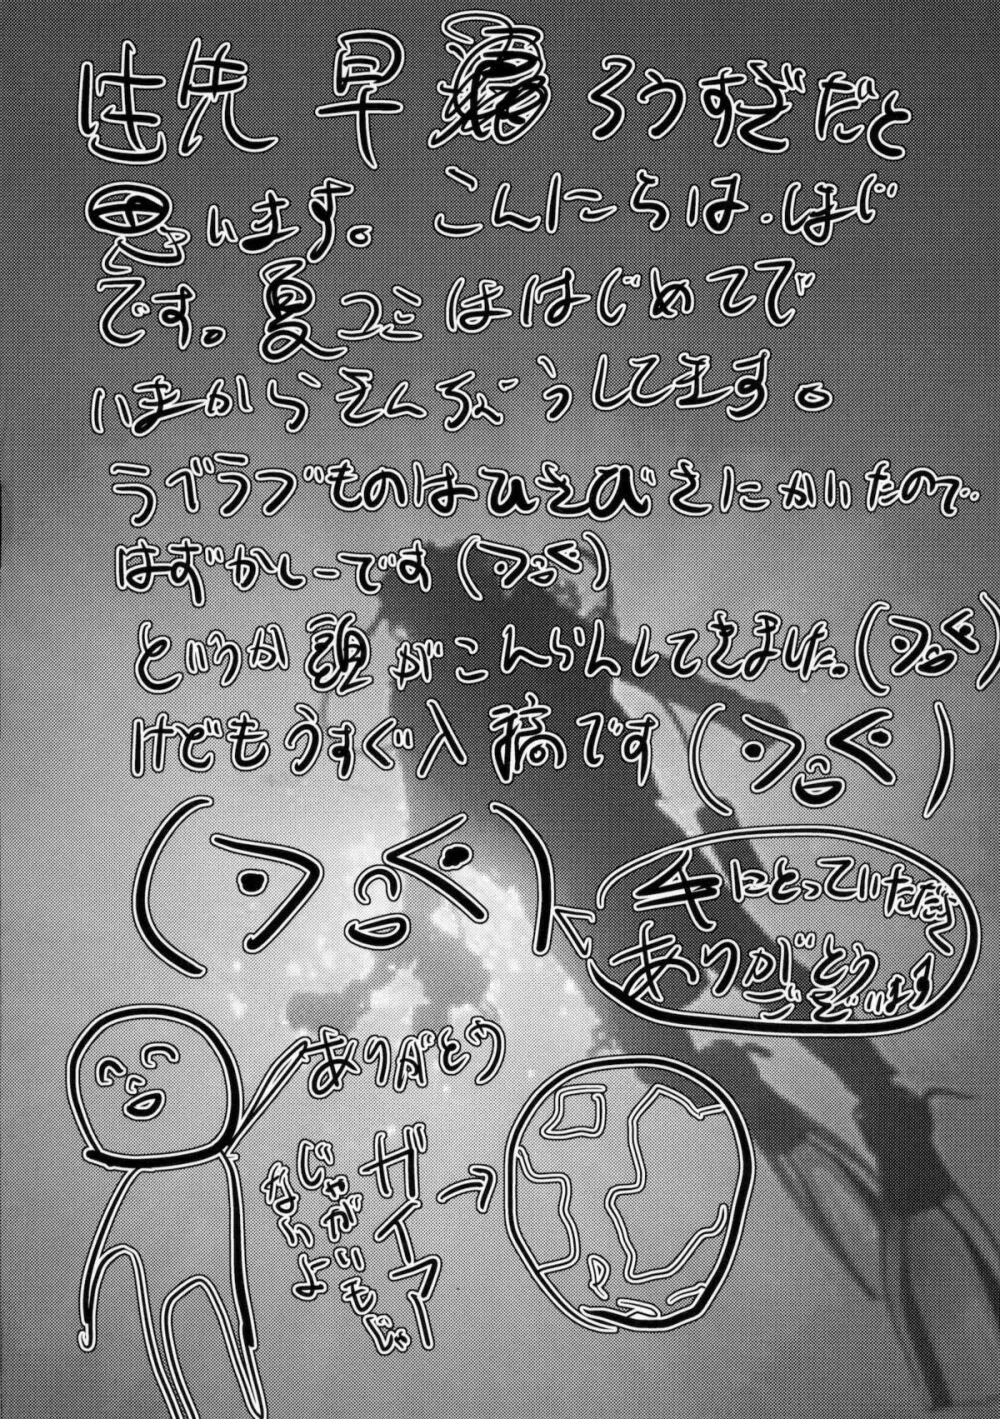 早 ろうすぎだと
思います。 こんにちは・ほじ
です。夏コミははじめてで
いまからぞんぶうしてます。
ラブラブものはひさびさにかいたので
はずかしーです
というか頭がこんらんしてきました。
けどもうすぐ入稿です
手にとっていただく
ありがとう
ございます
ありがとう
ガイアー
じゃがいもじゃ
ないよ